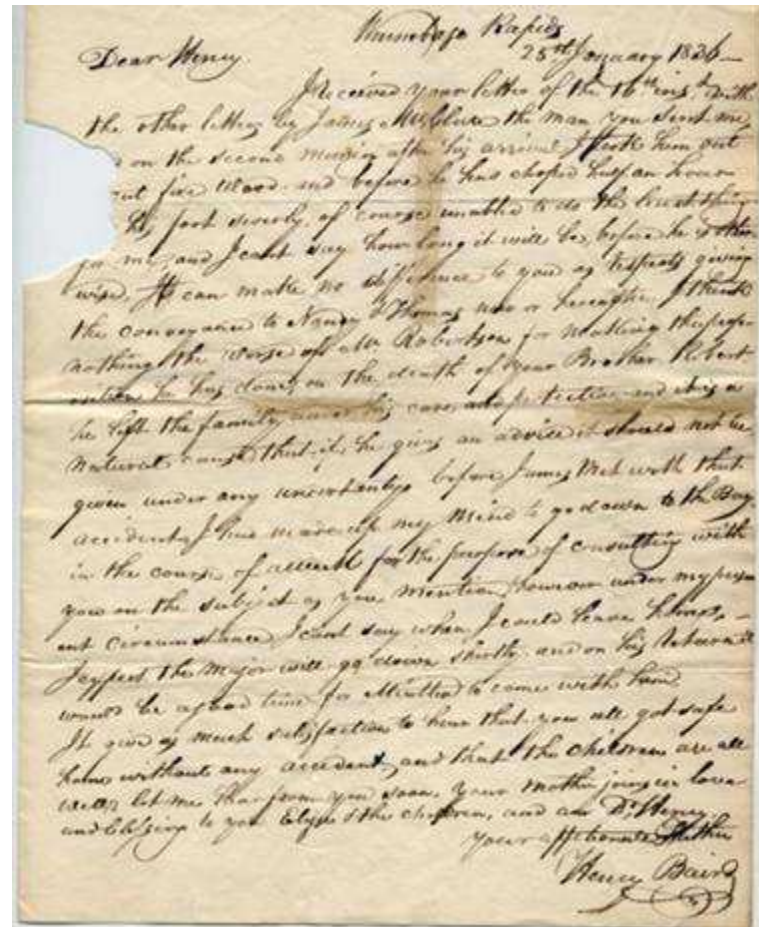 Winnebago Rapids
25th January 1836—
Dear Henry.
I Received your letter of the 16th inst. with
the other letters by James McClure the man you sent me,
on the second morning after his arrival I took him out
cut fire Wood and before he has choped half an hour
his foot severly, of course unable to do the least thing
for me, and I cant say how long it will be, before he is other
wise, It can make no difference to you as respects giving
the conveyance to Nancy & Thomas now or hereafter, I think
nothing the worse of Mr Robertson for making the propo-
sition he has done, on the death of your Brother Robert
he left the family under his care, and protection and it is a
natural cause that if he gives an advice it should not be
given under any uncertainty before James Met with that
accident, I has made up my Mind to go down to the Bay
in the course of a week for the purpose of consulting with
you on the subject as you mention, however under my pres
ent circumstance I cant say when I could leave home, —
I expect the Major will go down shortly and on his return it
would be a good time for to come with him
It give us much satisfaction to hear that you all got safe
home without any accident, and that the children are all
well, let me hear from you soon, your mother joins in love
and blessing to you Elyse & the children, and am Dr. Henry
your affectionate Father
Henry Baird